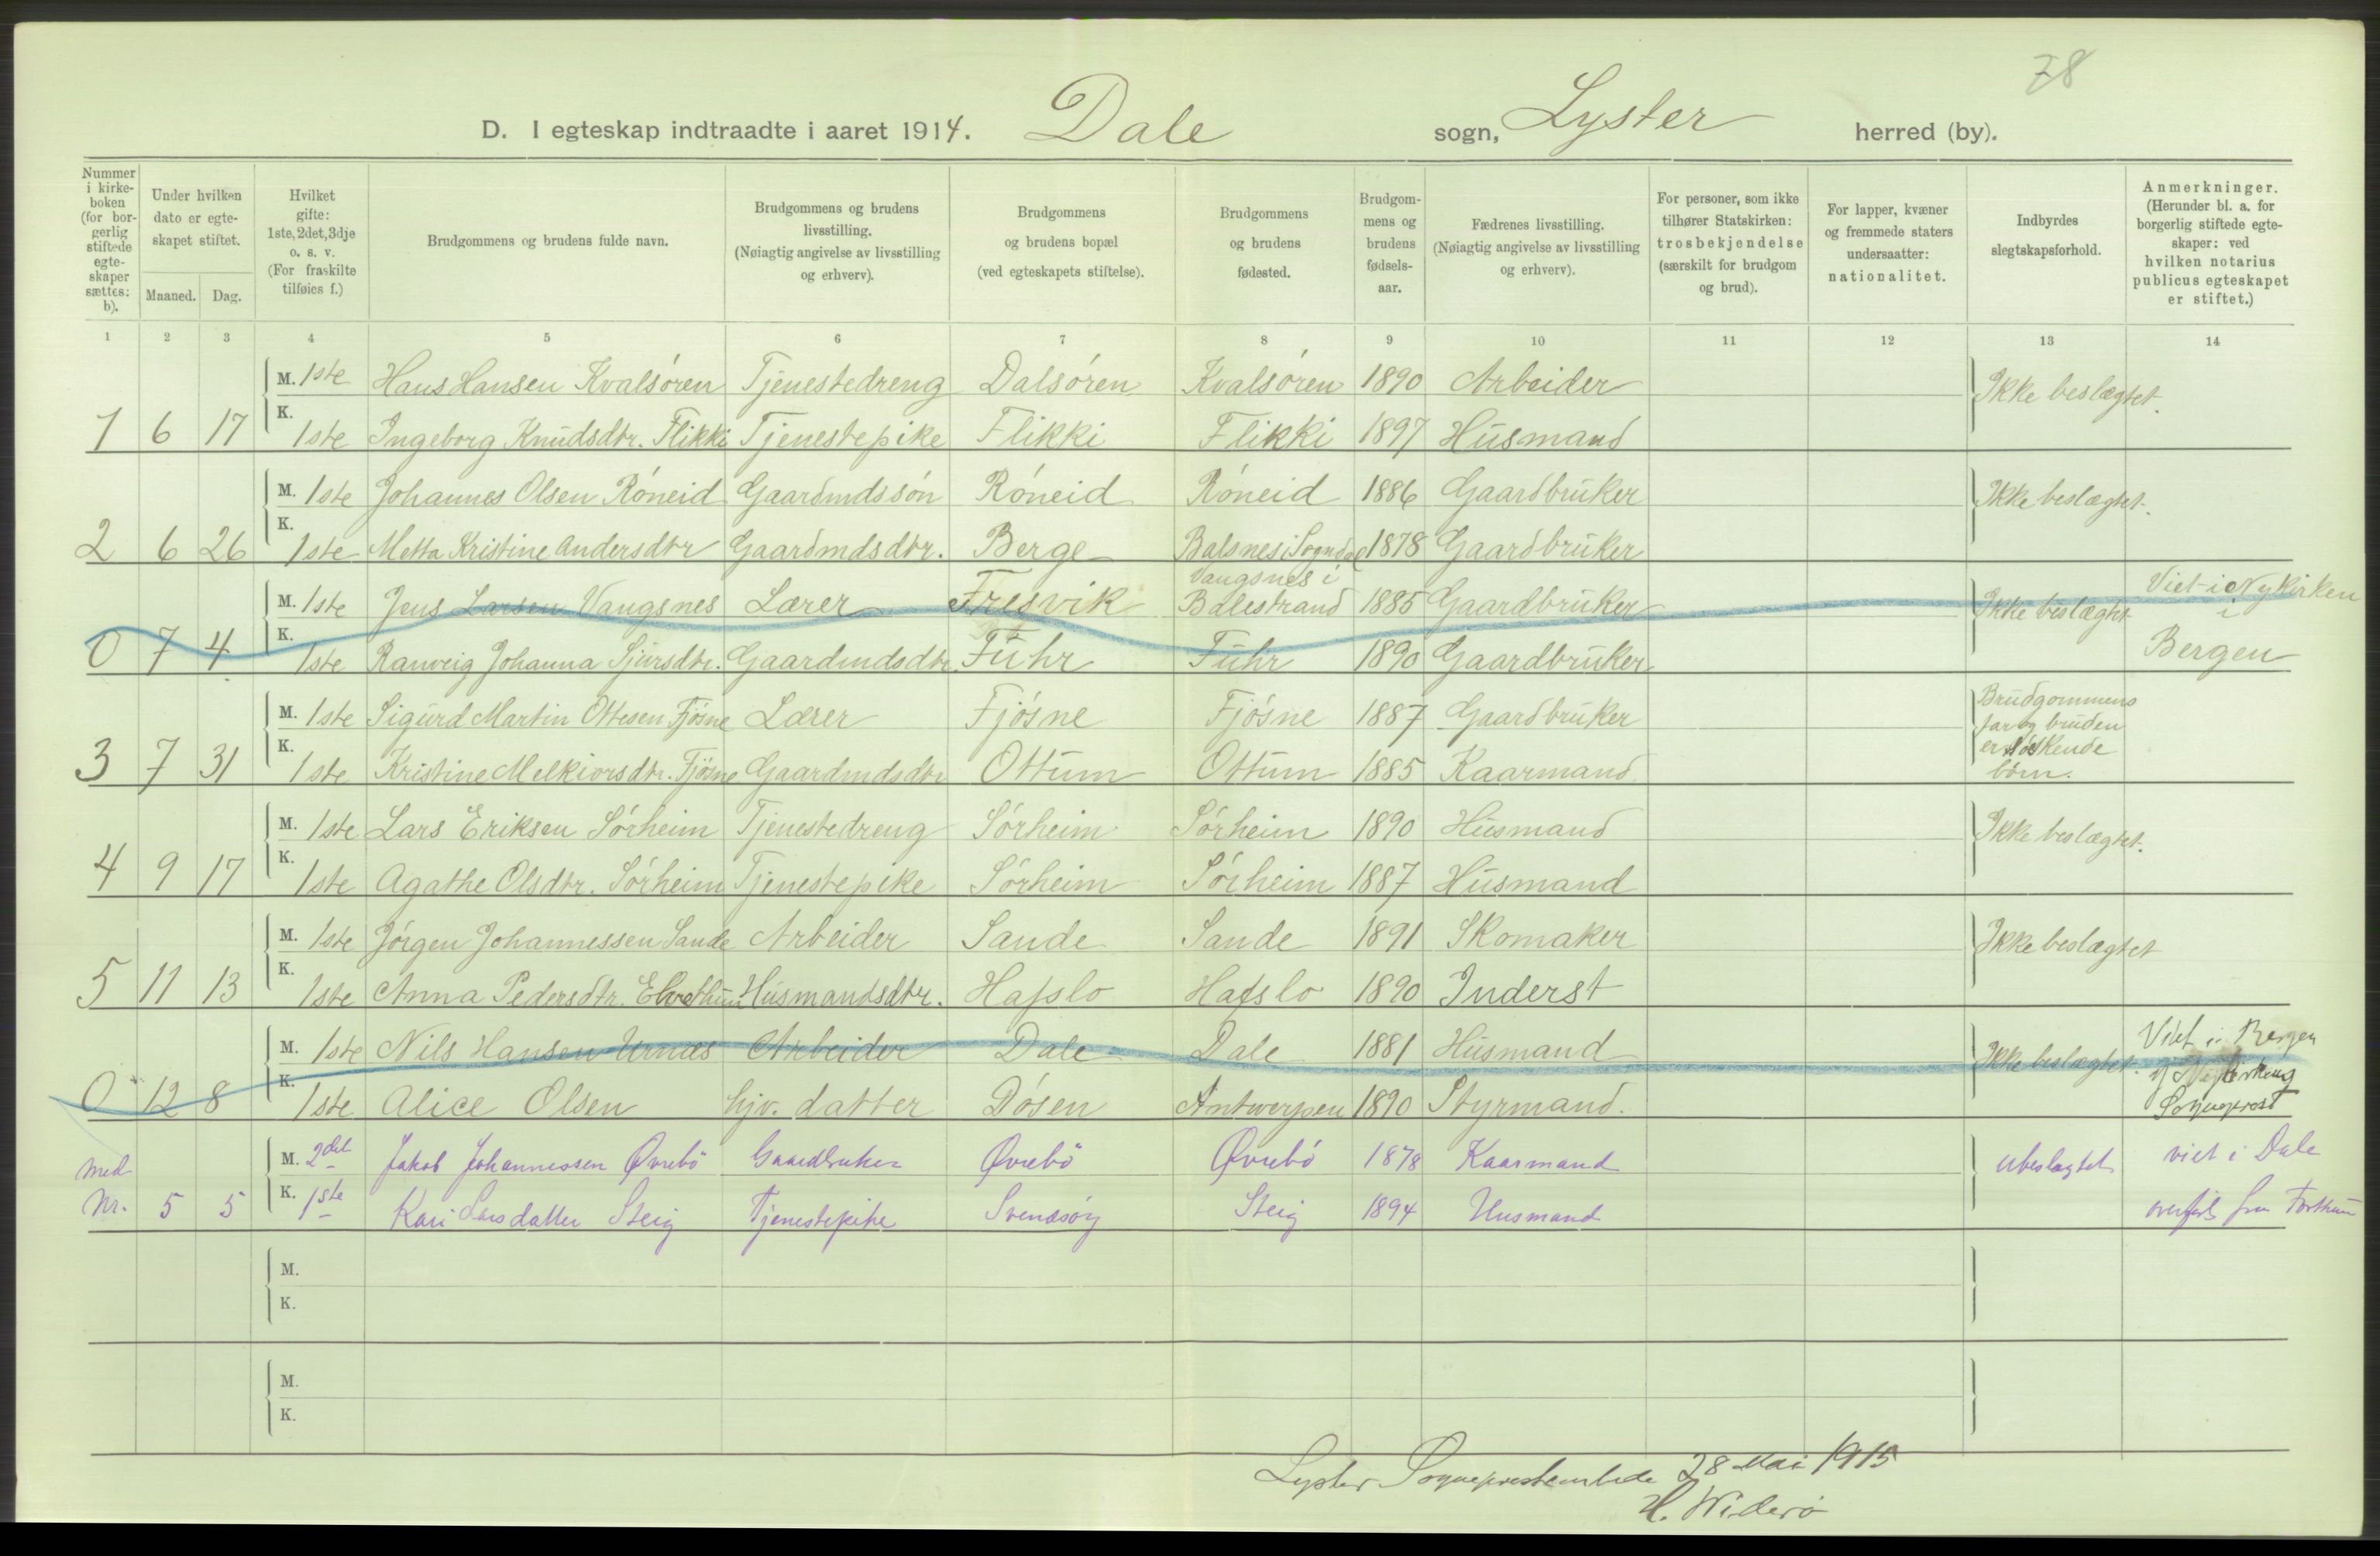 78
D. I egteskap indtraadte i aaret 1914. Dale sogn, Lyster herred (by).
Nummer i kirke-boken (for bor-gerlig stiftede egte-skaper sættes: b).
Under hvilken dato er egte-skapet stiftet.
Maaned. Dag.
Hvilket gifte: 1ste, 2det, 3dje o. s. v. (For fraskilte tilføies f.)
Brudgommens og brudens fulde navn.
Brudgommens og brudens livsstilling. (Nøiagtig angivelse av livsstilling og erhverv).
Brudgommens og brudens bopæl (ved egteskapets stiftelse).
Brudgommens og brudens fødested.
Brudgom-mens og brudens fødsels-aar.
Fædrenes livsstilling. (Nøiagtig angivelse av livsstilling og erhverv).
For personer, som ikke tilhører Statskirken: trosbekjendelse (særskilt for brudgom og brud).
For lapper, kvæner og fremmede staters undersaatter: nationalitet.
Indbyrdes slegtskapsforhold.
Anmerkninger. (Herunder bl. a. for borgerlig stiftede egte-skaper: ved hvilken notarius publicus egteskapet er stiftet.)
1 2 3 4 5 6 7 8 9 10 11 12 13 14
M. 1ste Hans Hansen Kvalsóren Tjenestedreng Dalsóren Kvalsóren 1890 Arbeider Ikke beslægtet.
1 6 17 K. 1ste Ingeborg Knudsdtr. Flikki Tjenestepike Flikki Flikki 1897 Husmand
M. 1ste Johannes Olsen Róneid Gaardmdssón Róneid Róneid 1886 Gaardbruker Ikke beslægtet.
2 6 26 K. 1ste Metta Kristine Andersdtr Gaardmdsdtr. Berge Balsnes i Sogndal 1878 Gaardbruker
M. 1ste Jens Larsen Vangsnes Lærer Fresvik Vangsnes i Balestrand 1885 Gaardbruker Ikke beslægtet Viet i Nykirken i
0 7 4 K. 1ste Ranveig Johanna Sjursdtr. Gaardmdsdtr. Fuhr Fuhr 1890 Gaardbruker Bergen
M. 1ste Sigurd Martin Ottesen Fjósne Lærer Fjósne Fjósne 1887 Gaardbruker Brudgommens far og bruden er sóskende bórn.
3 7 31 K. 1ste Kristine Melkiorsdtr. Fjósne Gaardmdsdtr Ottum Ottum 1885 Kaarmand
M. 1ste Lars Eriksen Sórheim Tjenestedreng Sórheim Sórheim 1890 Husmand Ikke beslægtet.
4 9 17 K. 1ste Agathe Olsdtr. Sórheim Tjenestepike Sórheim Sórheim 1887 Husmand
M. 1ste Jórgen Johannessen Sande Arbeider Sande Sande 1891 Skomaker Ikke beslægtet
5 11 13 K. 1ste Anna Pedersdtr. Husmandsdtr. Hafslo Hafslo 1890 Inderst
M. 1ste Nils Hansen Urnæs Arbeider Dale Dale 1881 Husmand Ikke beslægtet. Viet i Bergen
0 12 8 K. 1ste Alice Olsen hjv. datter Dósen Antwerpen 1890 Styrmand. Sogneprest
med M. 2det Jakob Johannessen Øvrebö Gaardbruker Øvrebö Øvrebó 1878 Kaarmand ubeslægtet viet i Dale
Nr. 5 5 K. 1ste Kari Larsdatter Steig Tjenestepike Svendsöy Steig 1894 Husmand overført fra Forthun
M.
K.
M.
K.
Lyster Sogneprestembede 28 Mai 1915
H. Widerö